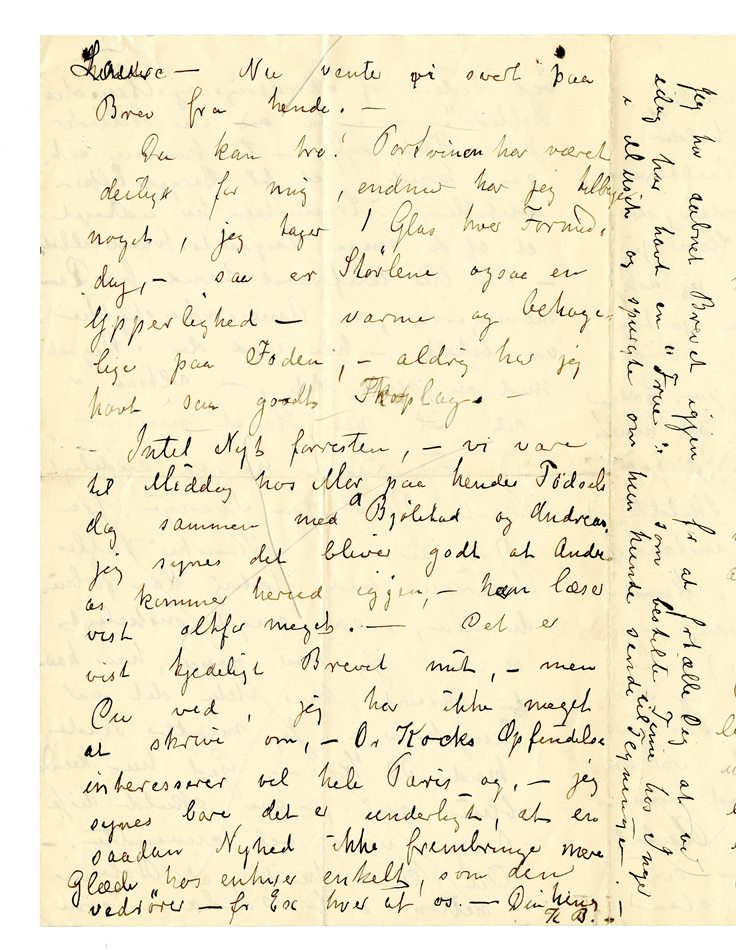 – Nu vente vi svert paa
Brev fra hende. –
Du kan tro! Portvinen har været
deilig for mig, endnu har jeg tilbage
noget, jeg tager 1 Glas hver Formid-
dag, – saa er Støvlene ogsaa en
Ypperlighed – varme og behage-
lige paa Foden, – aldrig har jeg
havt saa godt Skoplag. –
– Intet Nyt forresten, – vi vare
til Middag hos Mor paa hendes Fødsels
dag sammen med Bjølstad og Andreas,
jeg synes det bliver godt at Andre-
as kommer herud igjen, – han læser
vist altfor meget. – Det er
vist kjedeligt Brevet mit, – men
Du ved, jeg har ikke meget
at skrive om, – Dr Kocks Opfindelse
interesserer vel hele Paris og, – jeg
synes bare det er underligt, at en
saadan Nyhed ikke frembringe mere
Glæde hos enhver enkelt, som den
vedrører – fr Ex hver af os. – Din heng
K B. –
Jeg har aabnet Brevet igjen for at fortælle Dig at vi
idag har havt en "Frue" som bestilte Time hos Inger
i Musik og spurgte om hun kunde sende til Tegninger. –